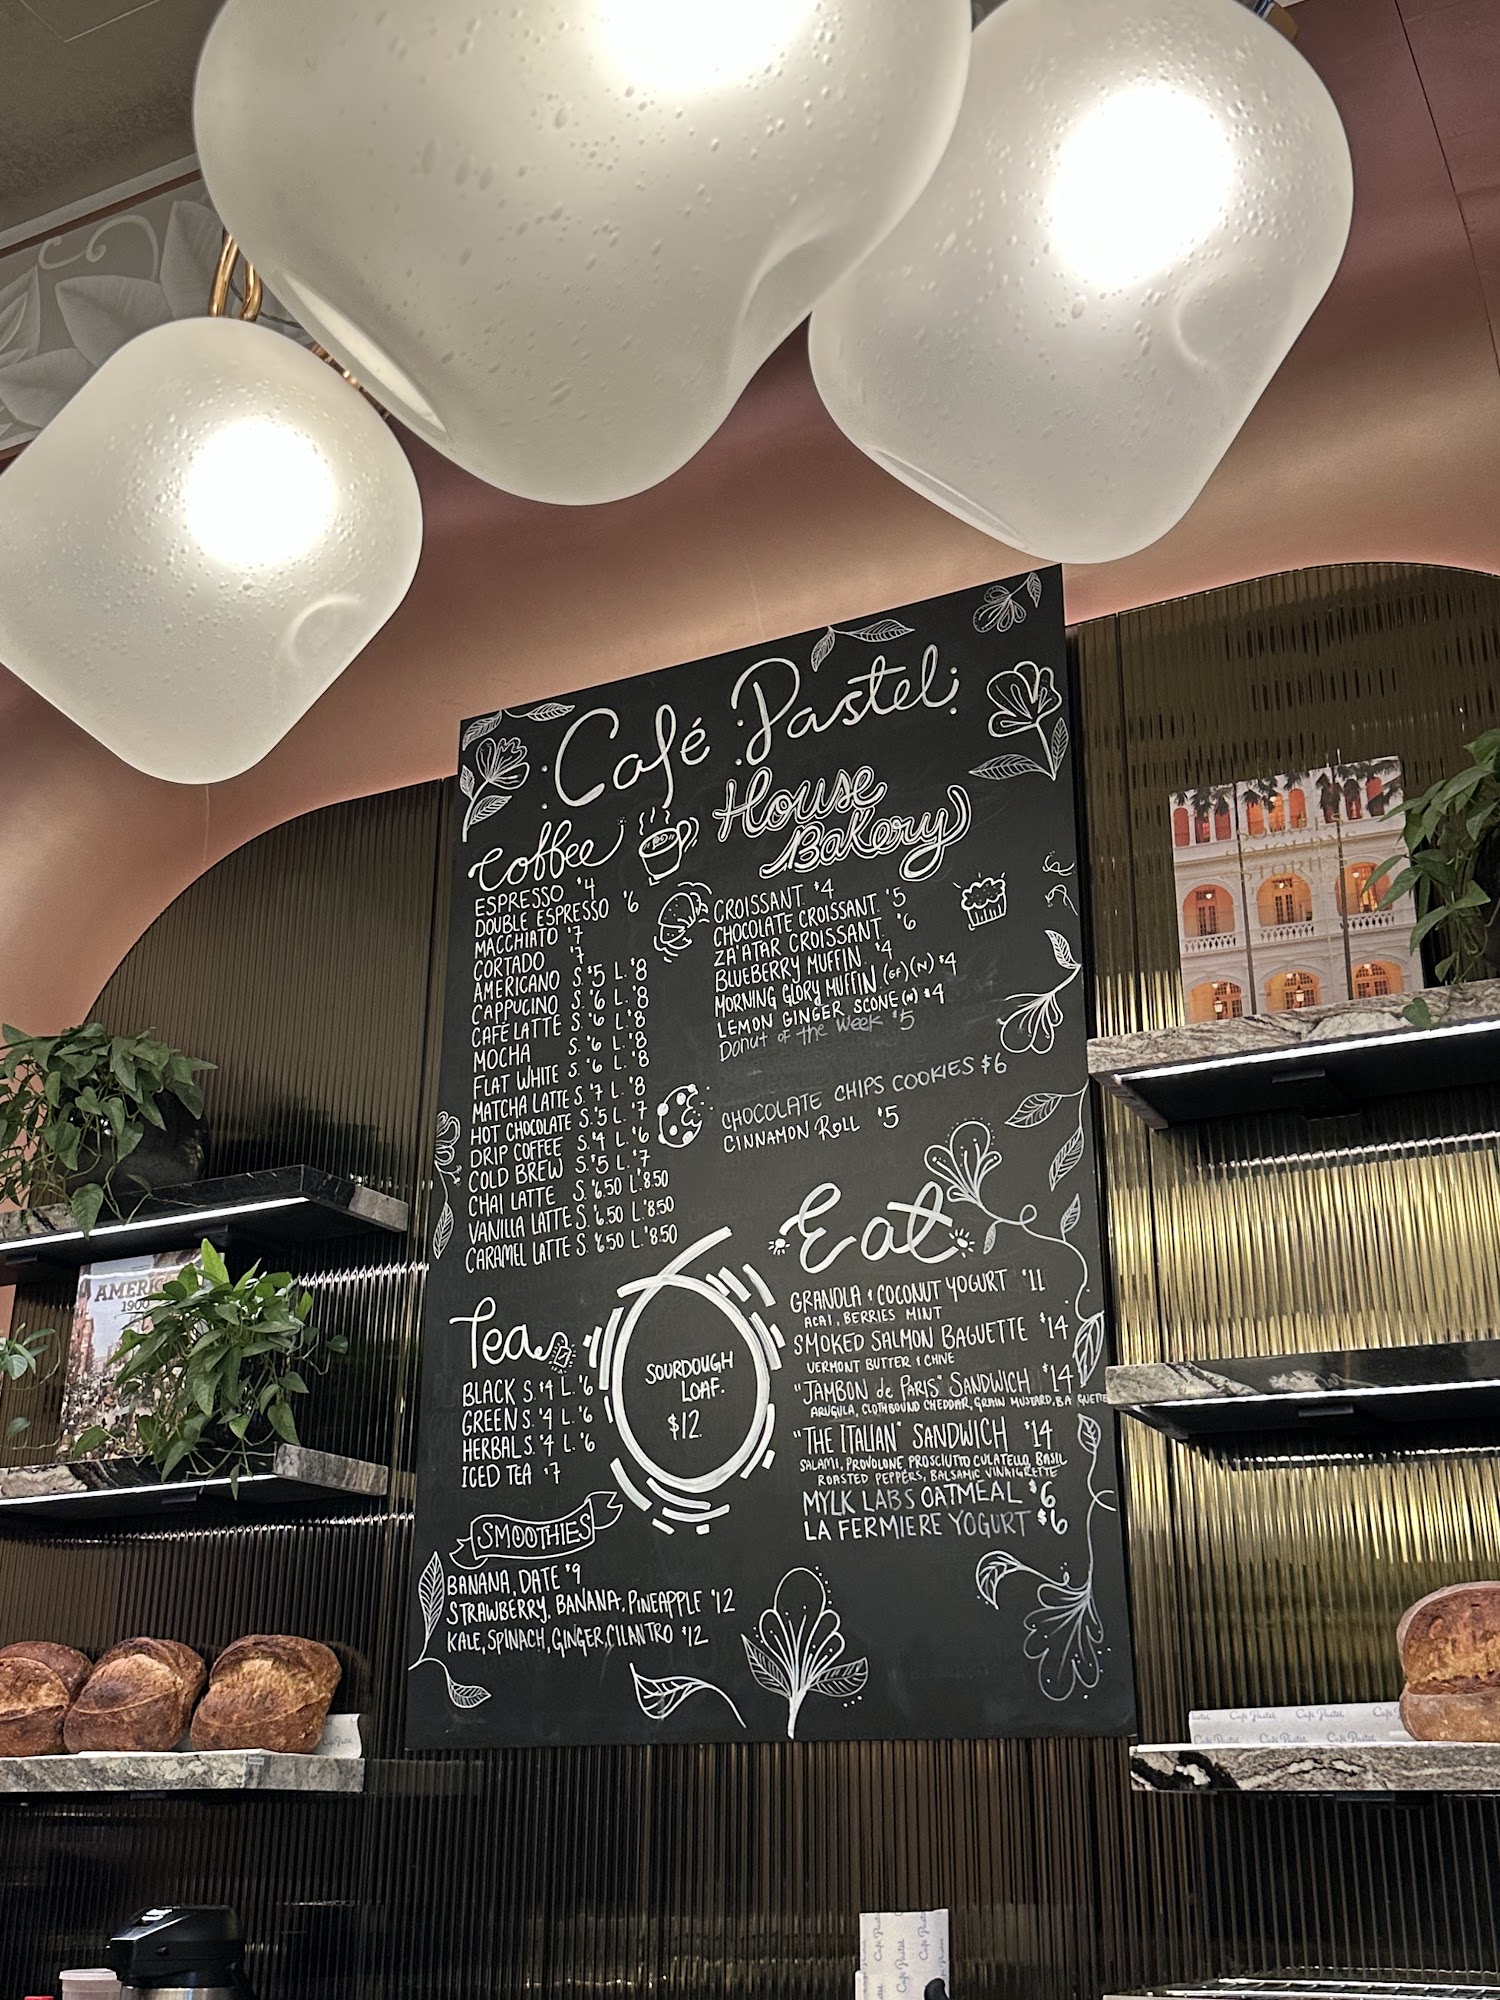 Café Pastel
Coffee
ESPRESSO $4
DOUBLE ESPRESSO $6
MACCHIATO $7
CORTADO $7
AMERICANO S. $5 L. $8
CAPPUCINO S. $6 L. $8
CAFÉ LATTE S. $6 L. $8
MOCHA S. $6 L. $8
FLAT WHITE S. $6 L. $8
MATCHA LATTE S. $7 L. $8
HOT CHOCOLATE S. $5 L. $7
DRIP COFFEE S. $4 L. $6
COLD BREW S. $5 L. $7
CHAI LATTE S. $6.50 L. $8.50
VANILLA LATTE S. $6.50 L. $8.50
CARAMEL LATTE S. $6.50 L. $8.50
House
Bakery
CROISSANT. $4
CHOCOLATE CROISSANT. $5
ZA'ATAR CROISSANT. $6
BLUEBERRY MUFFIN. $4
MORNING GLORY MUFFIN (GF)(N) $4
LEMON GINGER SCONE (N) $4
Donut of the Week $5
CHOCOLATE CHIPS COOKIES $6
CINNAMON ROLL $5
Tea
BLACK S. $4 L. $6
GREEN S. $4 L. $6
HERBAL S. $4 L. $6
ICED TEA $7
SOURDOUGH
LOAF.
$12.
Eat
GRANOLA & COCONUT YOGURT $11
ACAI, BERRIES MINT
SMOKED SALMON BAGUETTE $14
VERMONT BUTTER & CHIVE
"JAMBON de PARIS" SANDWICH $14
ARUGULA, CLOTHBOUND CHEDDAR, GRAIN MUSTARD, BAGUETTE
"THE ITALIAN" SANDWICH $14
SALAMI, PROVOLONE, PROSCIUTTO CULATELLO, BASIL
ROASTED PEPPERS, BALSAMIC VINAIGRETTE
MYLK LABS OATMEAL $6
LA FERMIERE YOGURT $6
SMOOTHIES
BANANA, DATE $9
STRAWBERRY, BANANA, PINEAPPLE $12
KALE, SPINACH, GINGER, CILANTRO $12
AMERICA
1900
STORIES
Café Pastel
Café Pastel
Café Pastel
Café Pastel